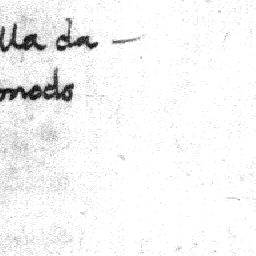 lla da —
modo